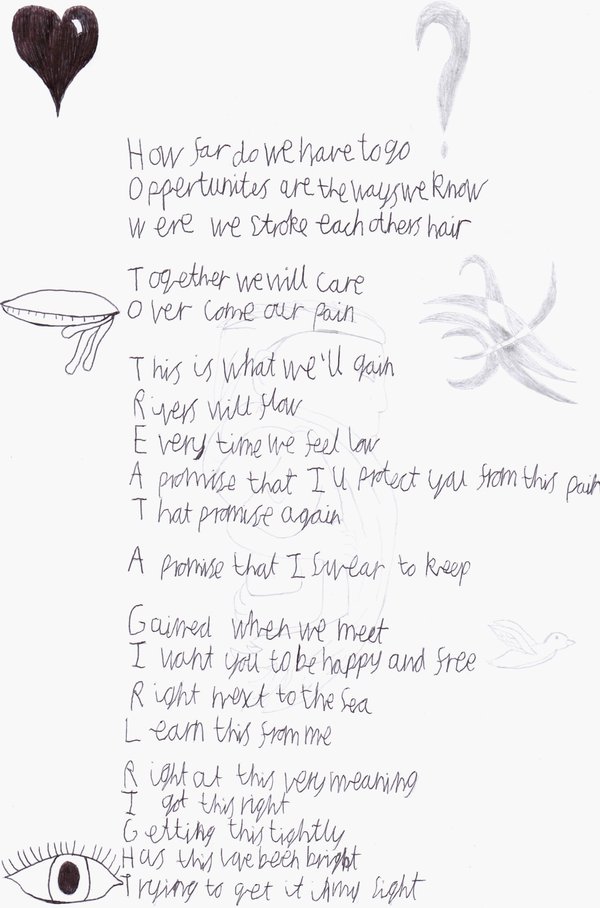 How far do we have to go
Oppertunites are the ways we know
Were we stroke each others hair
Together we will care
Over come our pain
This is what we'll gain
Rivers will flow
Every time we feel low
A promise that I'll protect you from this pain
That promise again
A promise that I swear to keep
Gained when we meet
I want you to be happy and free
Right next to the sea
Learn this from me
Right at this very meaning
I got this right
Getting this tightly
Has this love been bright
Trying to get it in my sight